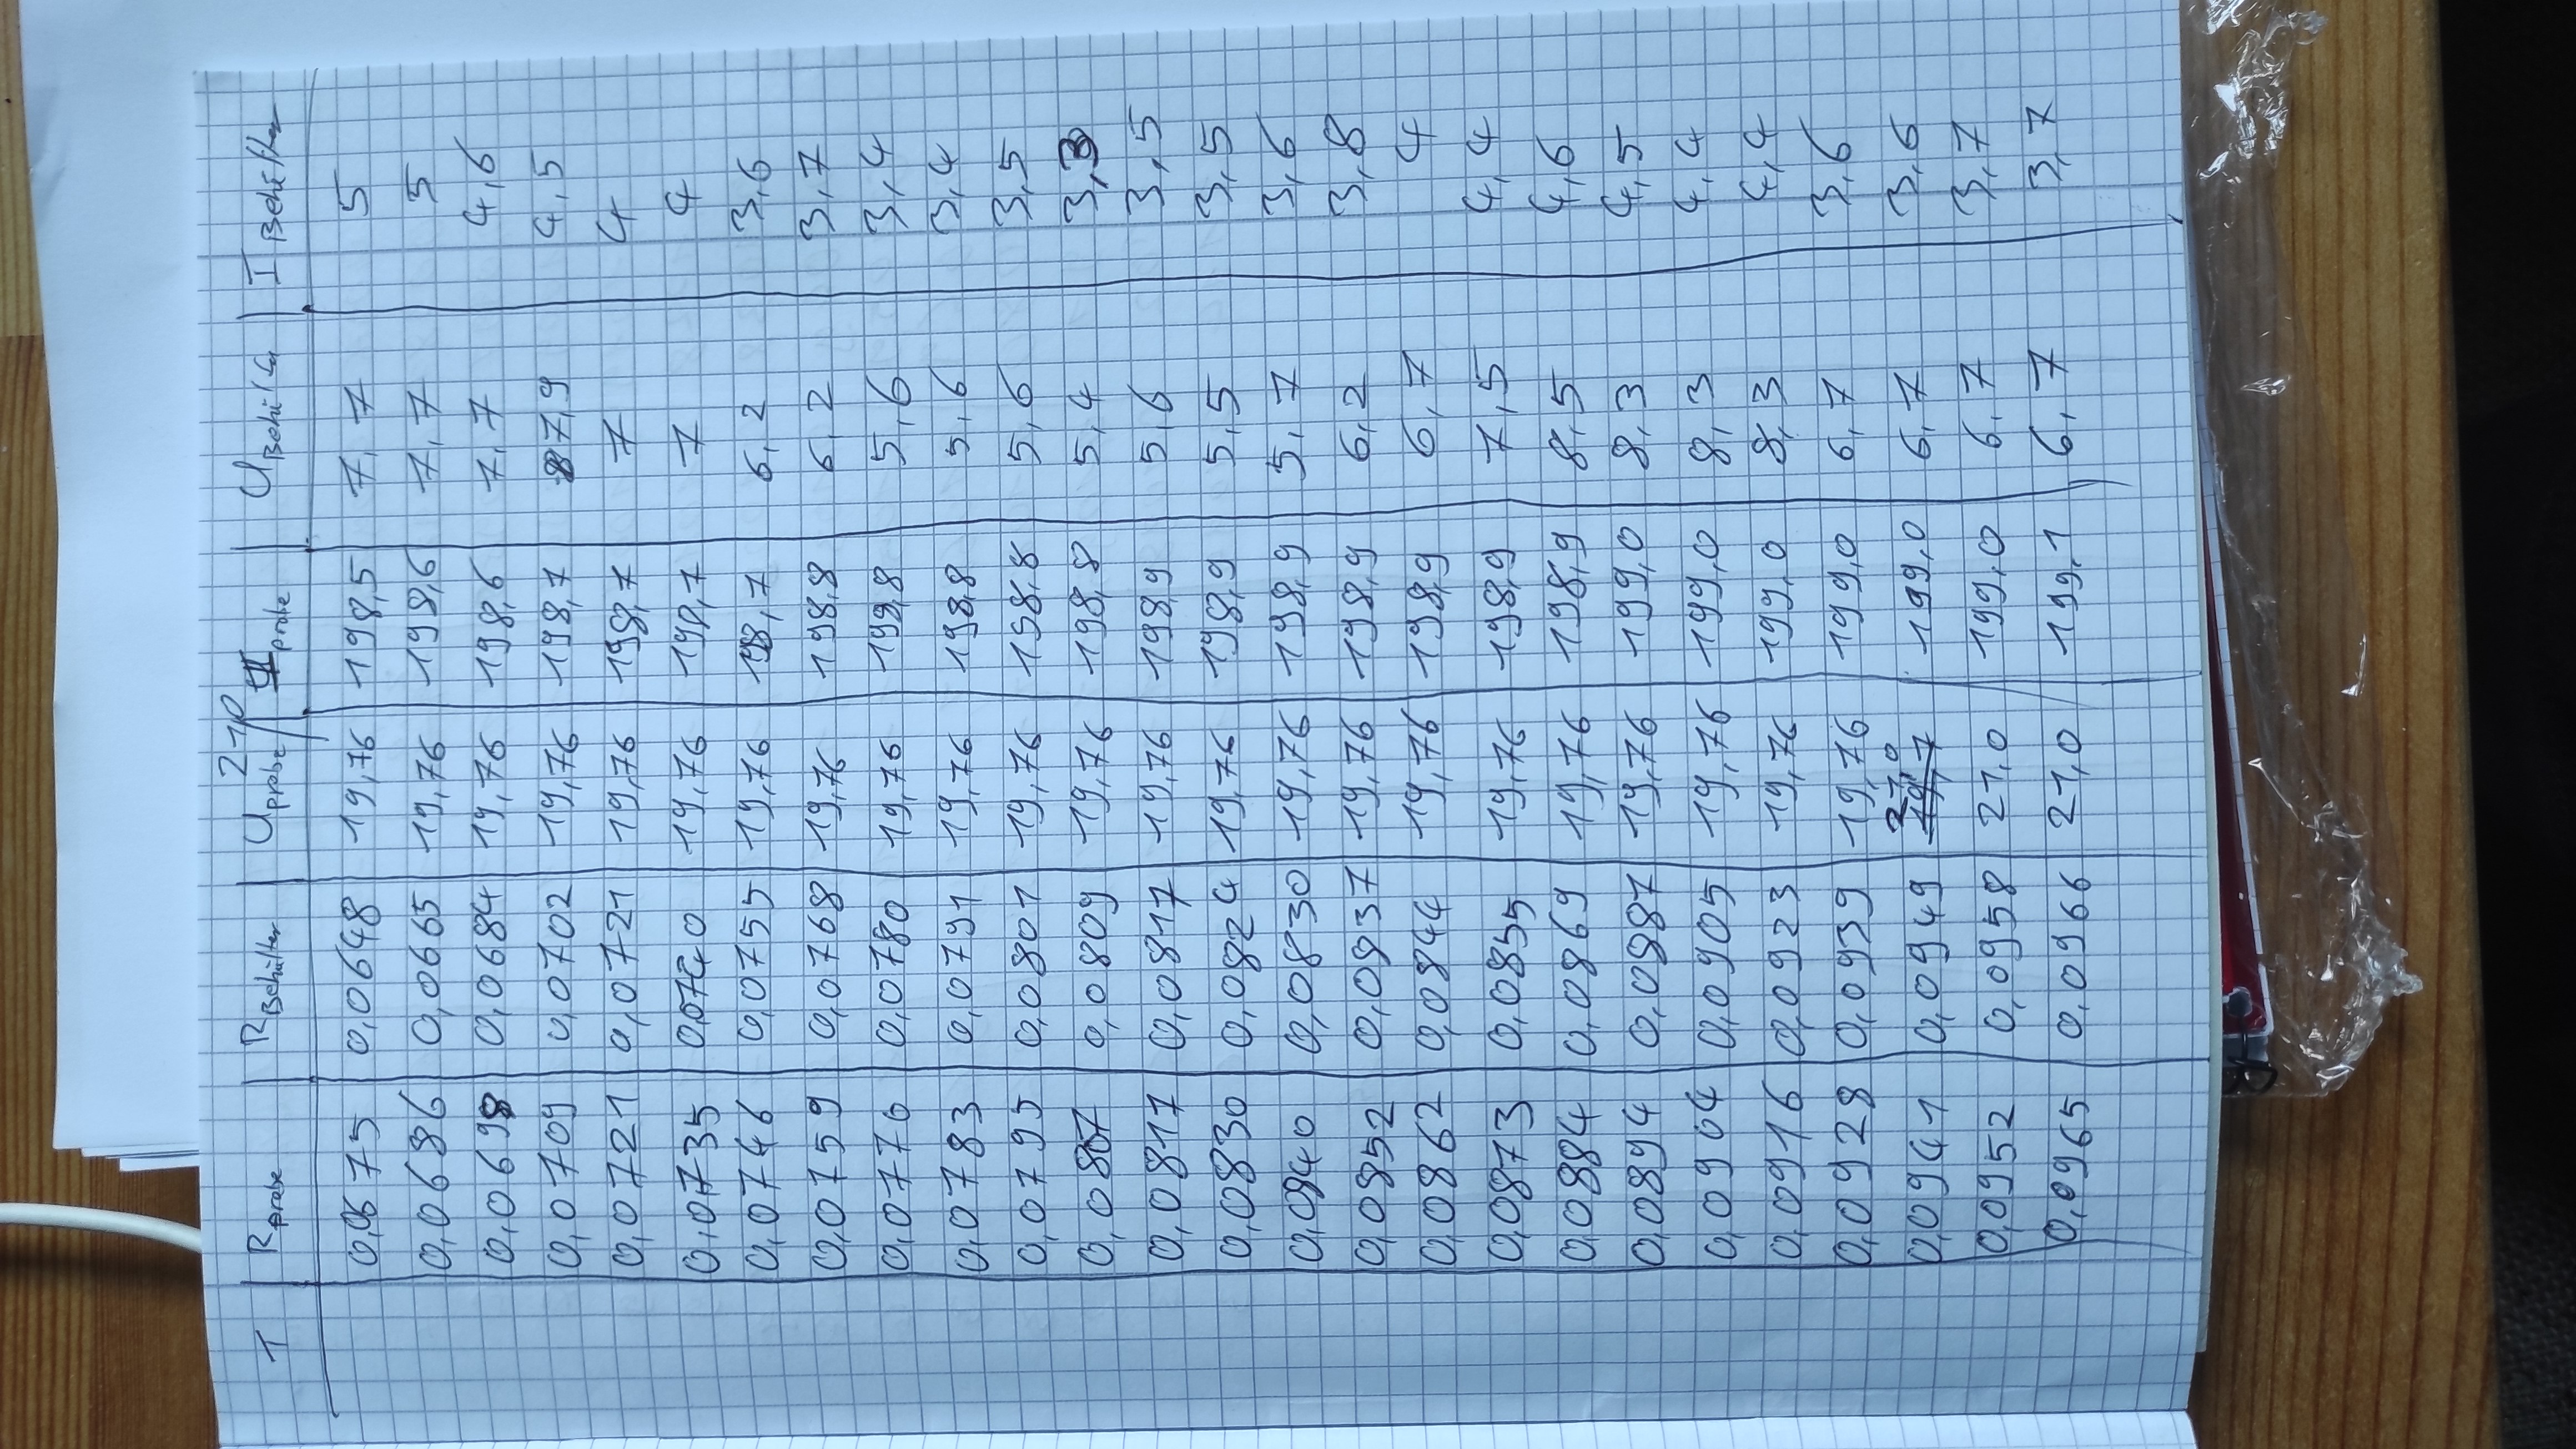 21,0
T R Probe R Behälter U Probe I Probe U Behälter I Behälter
0,0675 0,0648 19,76 198,5 7,7 5
0,0686 0,0665 19,76 198,6 7,7 5
0,0698 0,0684 19,76 198,6 7,7 4,6
0,0709 0,0702 19,76 198,7 7,9 4,5
0,0721 0,0721 19,76 198,7 7 4
0,0735 0,0740 19,76 198,7 7 4
0,0746 0,0755 19,76 198,7 6,2 3,6
0,0759 0,0768 19,76 198,8 6,2 3,7
0,0770 0,0780 19,76 198,8 5,6 3,4
0,0783 0,0791 19,76 198,8 5,6 3,4
0,0795 0,0801 19,76 198,8 5,6 3,5
0,0807 0,0809 19,76 198,8 5,4 3,3
0,0817 0,0817 19,76 198,9 5,6 3,5
0,0830 0,0824 19,76 198,9 5,5 3,5
0,0840 0,0830 19,76 198,9 5,7 3,6
0,0852 0,0837 19,76 198,9 6,2 3,8
0,0862 0,0844 19,76 198,9 6,7 4
0,0873 0,0855 19,76 198,9 7,5 4,4
0,0884 0,0869 19,76 198,9 8,5 4,6
0,0894 0,0887 19,76 199,0 8,3 4,5
0,0904 0,0905 19,76 199,0 8,3 4,4
0,0916 0,0923 19,76 199,0 8,3 4,4
0,0928 0,0939 19,76 199,0 6,7 3,6
21,0
0,0941 0,0949 19,7 199,0 6,7 3,6
0,0952 0,0958 21,0 199,0 6,7 3,7
0,0965 0,0966 21,0 199,1 6,7 3,7